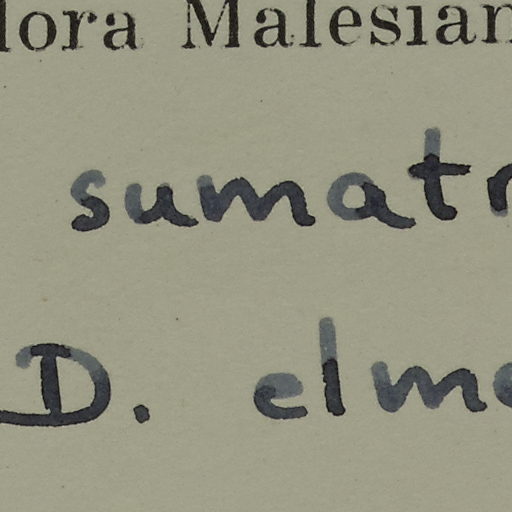 lora Malesian
sumatr
D. elme